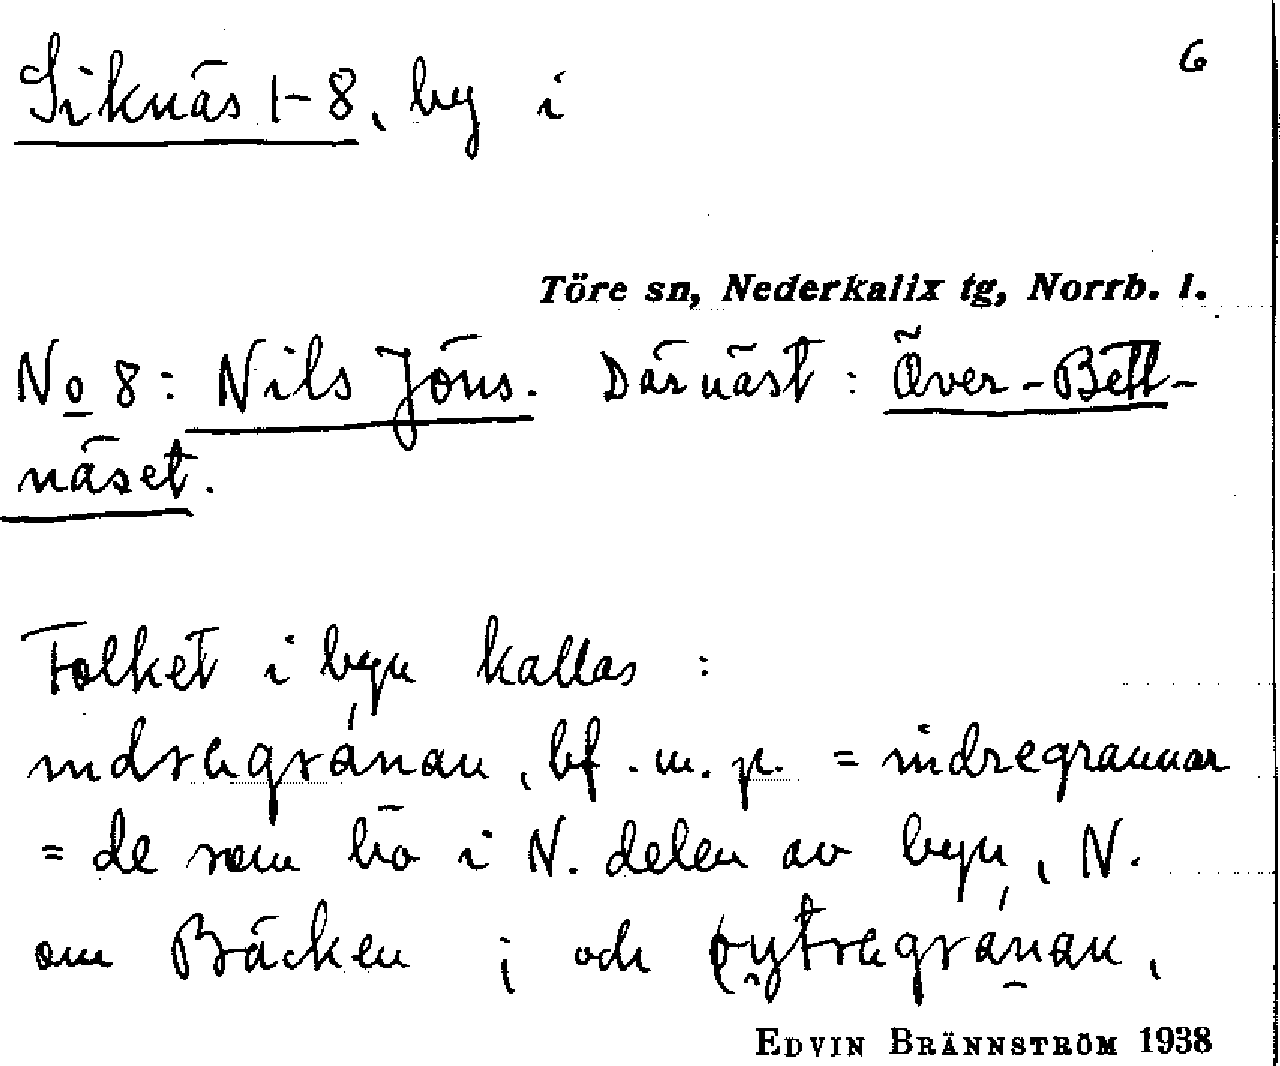 6
Siknäs 1-8, by i
Töre sn, Nederkalix tg, Norrb. l.
No 8: Nils Jöns. Därnäst: Över-Bett-
näset.
Folket i byn kallas:
indregránan, bf. m. p. = indregrannar
= de som bo i N. delen av byn, N.
om Bäcken; och
EDVIN BRÄNNSTRÖM 1938